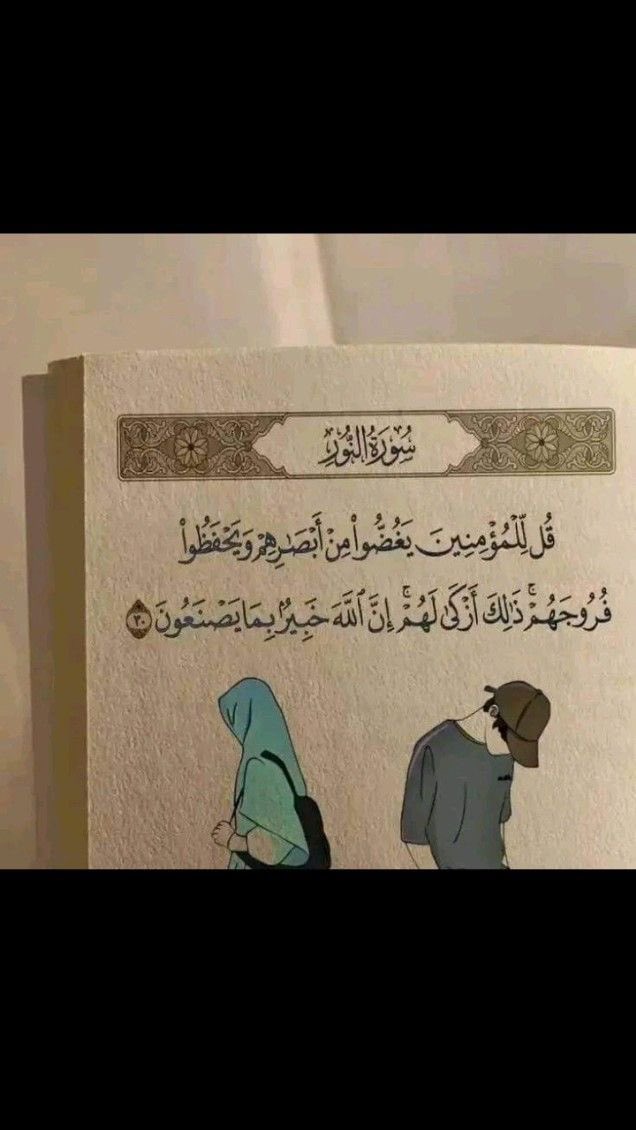 سُورَةُ النُّورِ
قُل لِّلْمُؤْمِنِينَ يَغُضُّوا۟ مِنْ أَبْصَٰرِهِمْ وَيَحْفَظُوا۟
فُرُوجَهُمْ ۚ ذَٰلِكَ أَزْكَىٰ لَهُمْ ۚ إِنَّ ٱللَّهَ خَبِيرٌۢ بِمَا يَصْنَعُونَ ٣٠